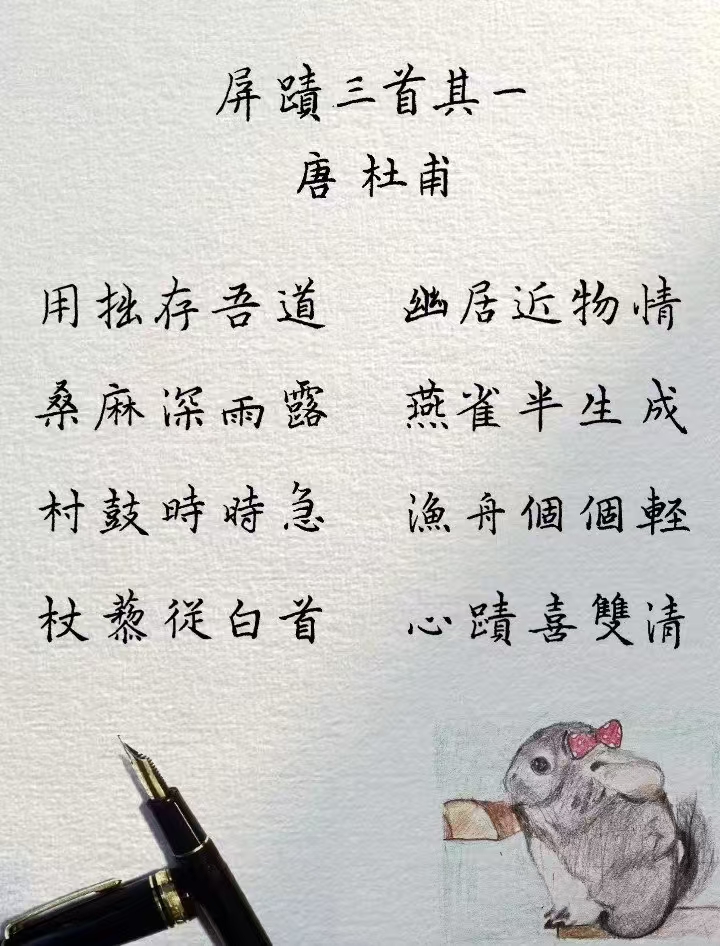 屏蹟三首其一
唐 杜甫
用拙存吾道 幽居近物情
桑麻深雨露 燕雀半生成
村鼓時時急 漁舟個個軽
杖藜從白首 心蹟喜雙清